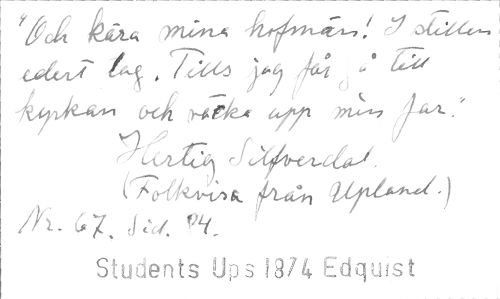 "Och kära mina hofmän! I stillen
edert lag. Tills jag får gå till
kyrkan och väcka upp min far."
Hertig Silfverdal.
(Folkvisa från Upland.)
Nr. 67. Sid. 94.
Students Ups 1874 Edquist